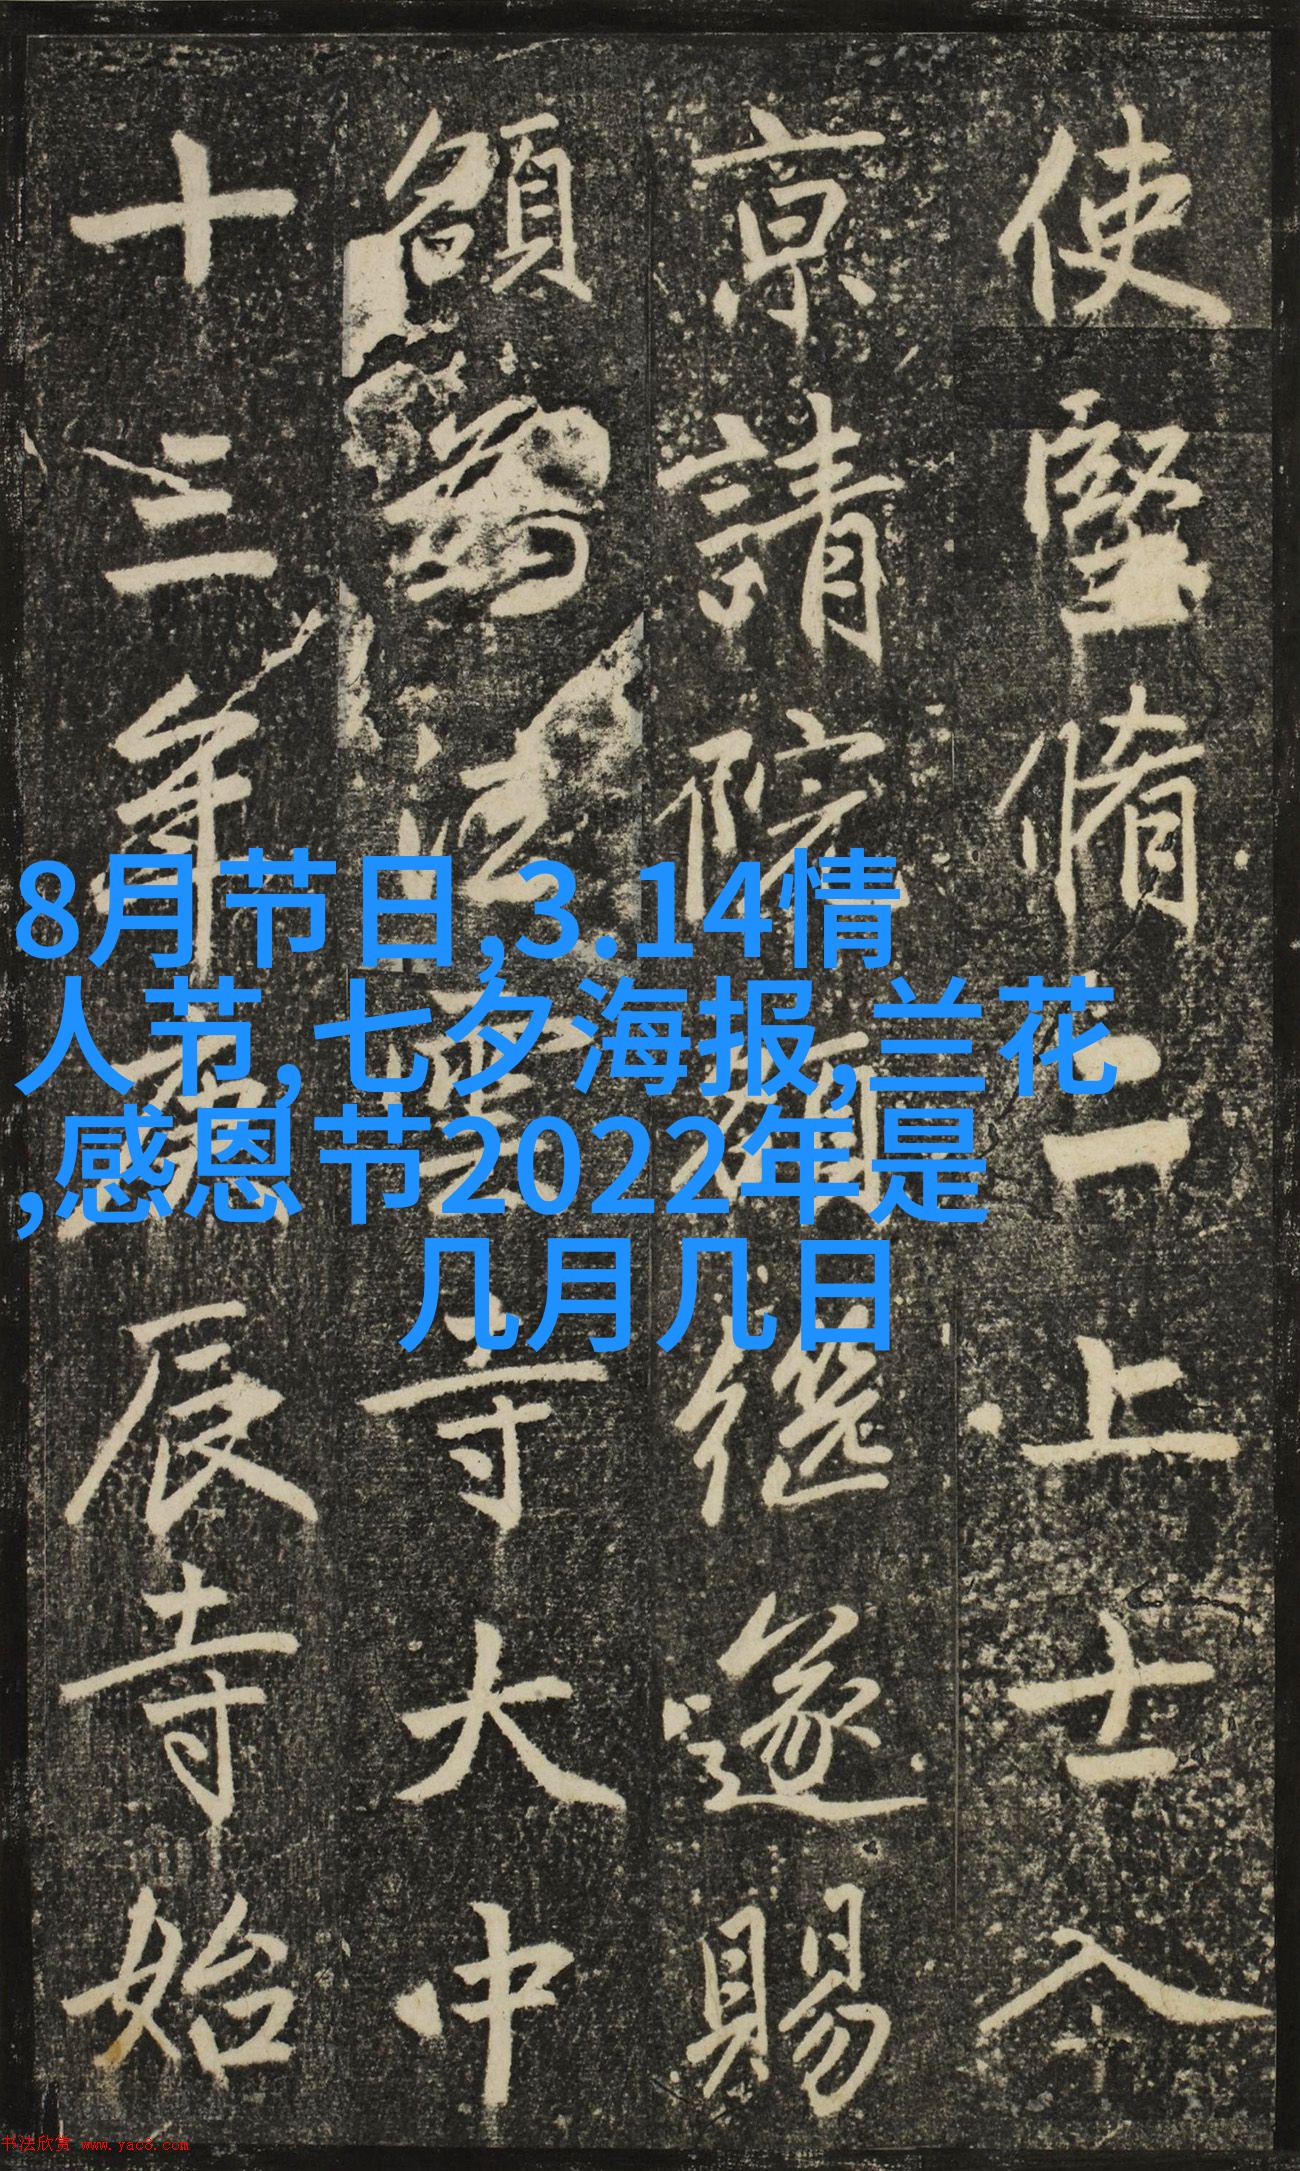 使堅脩二上士入
京請院額繼遂賜
額為法雲寺大中
十三年庚辰寺始
8月节日,3.14情
人节,七夕海报,兰花
,感恩节2022年是
几月几日
书法欣赏 www.yac8.com